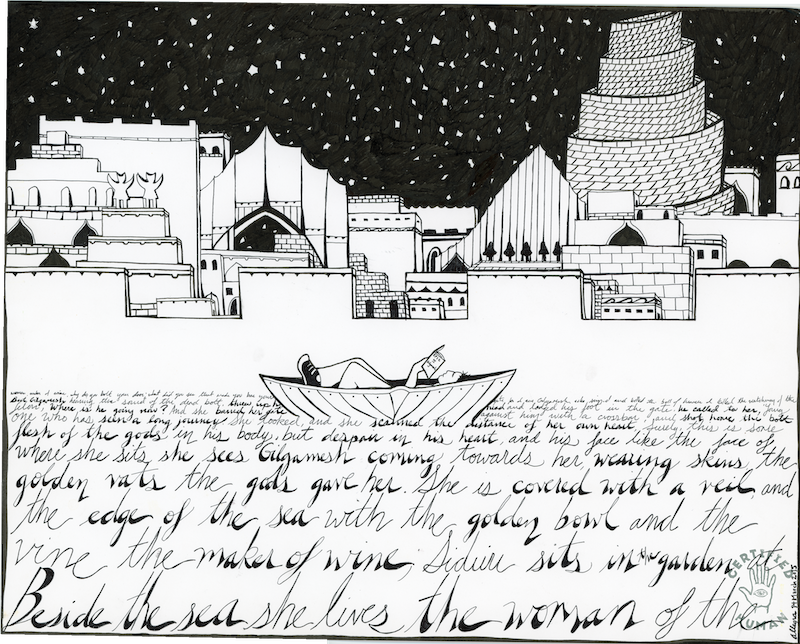 Beside the sea she lives the woman of the
vine, the maker of wine; Siduri sits in the garden at
the edge of the sea with the golden bowl and the
golden vats the gods gave her. She is covered with a veil, and
where she sits she sees Gilgamesh coming towards her, wearing skins, the
flesh of the gods in his body, but despair in his heart, and his face like the face of
one who has a long journey. She looked, and she scanned the distance of her own heart, Surely, this is some
felon; Where is he going now? And she barred her gate against him with a crossbar, and shot home the bolt
But Gilgamesh hearing the sound of the bolt threw up his head and lodged his foot in the gate. he called to her, Young
woman, maker of wine, why do you bolt your door; what did you see that made you bar your for I am Gilgamesh who seized and killed the Bull of Heaven, I killed the watchman of the
CERTIFIED HUMAN
2015